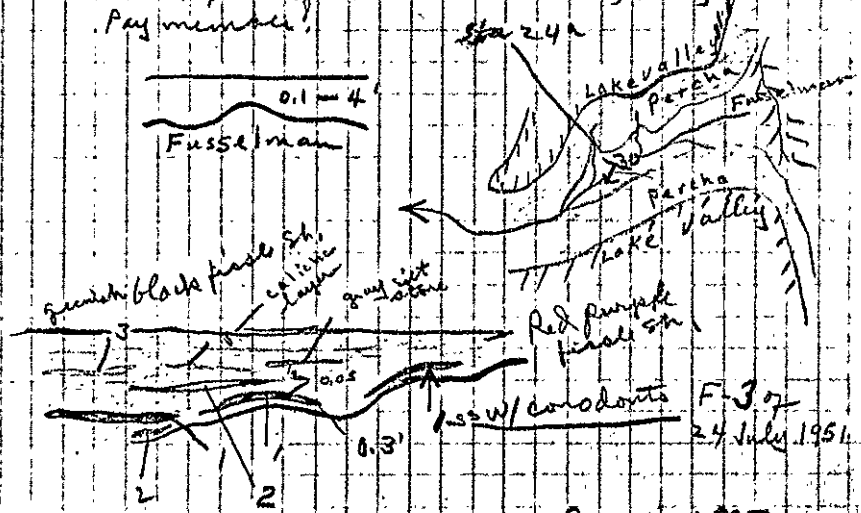 Pay
0.1 - 4'
Fusselman
Sta 24a
Lake valley
Percha
Fusselman
30
Percha
Lake Valley
greenish black fissile sh.
caliche layer
gray silt stone
3
Red purple fissile sh.
2
0.05
0.3'
ss w/ conodonts
F-3 of
24 July 1951
1
1
2
2